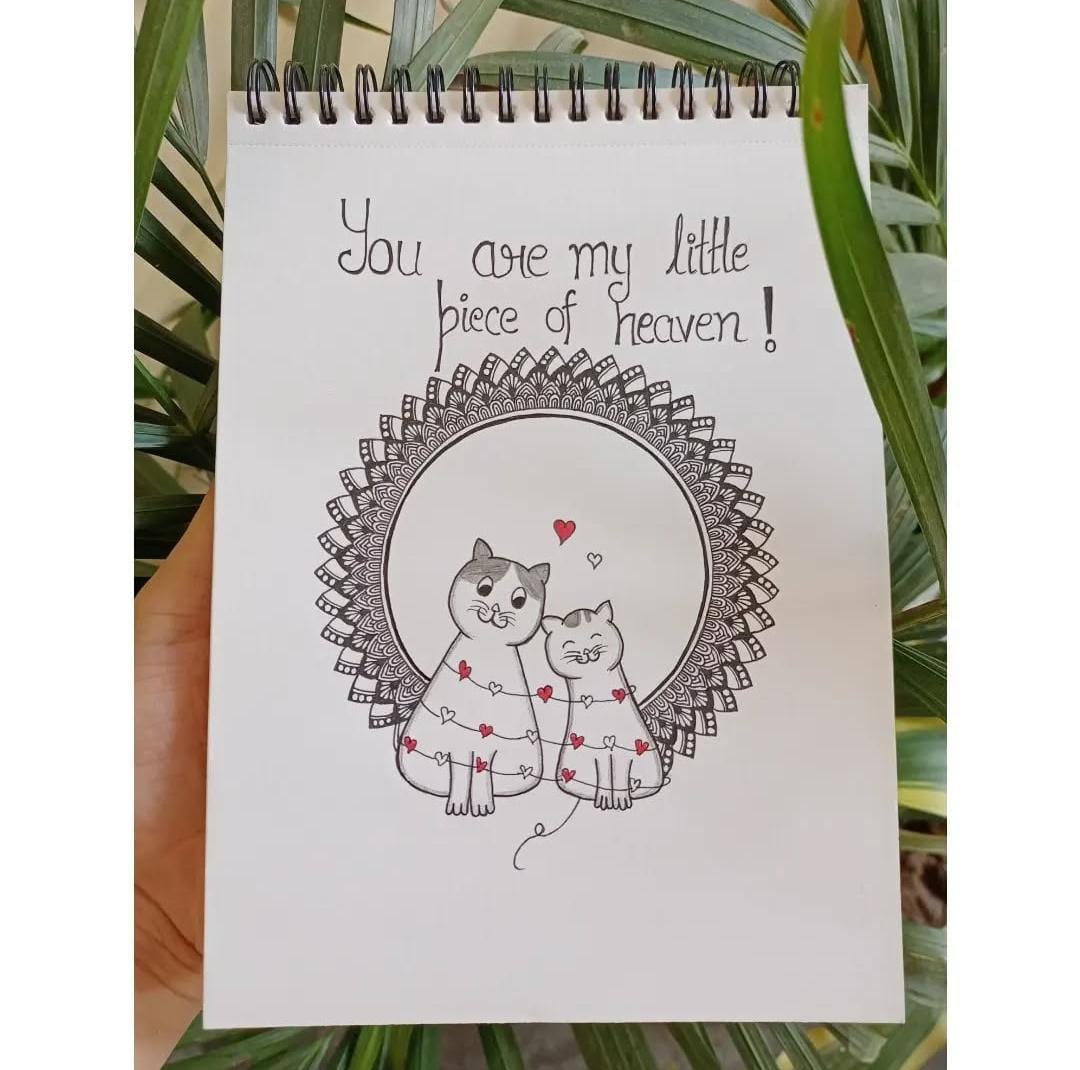 You are my little
piece of heaven!